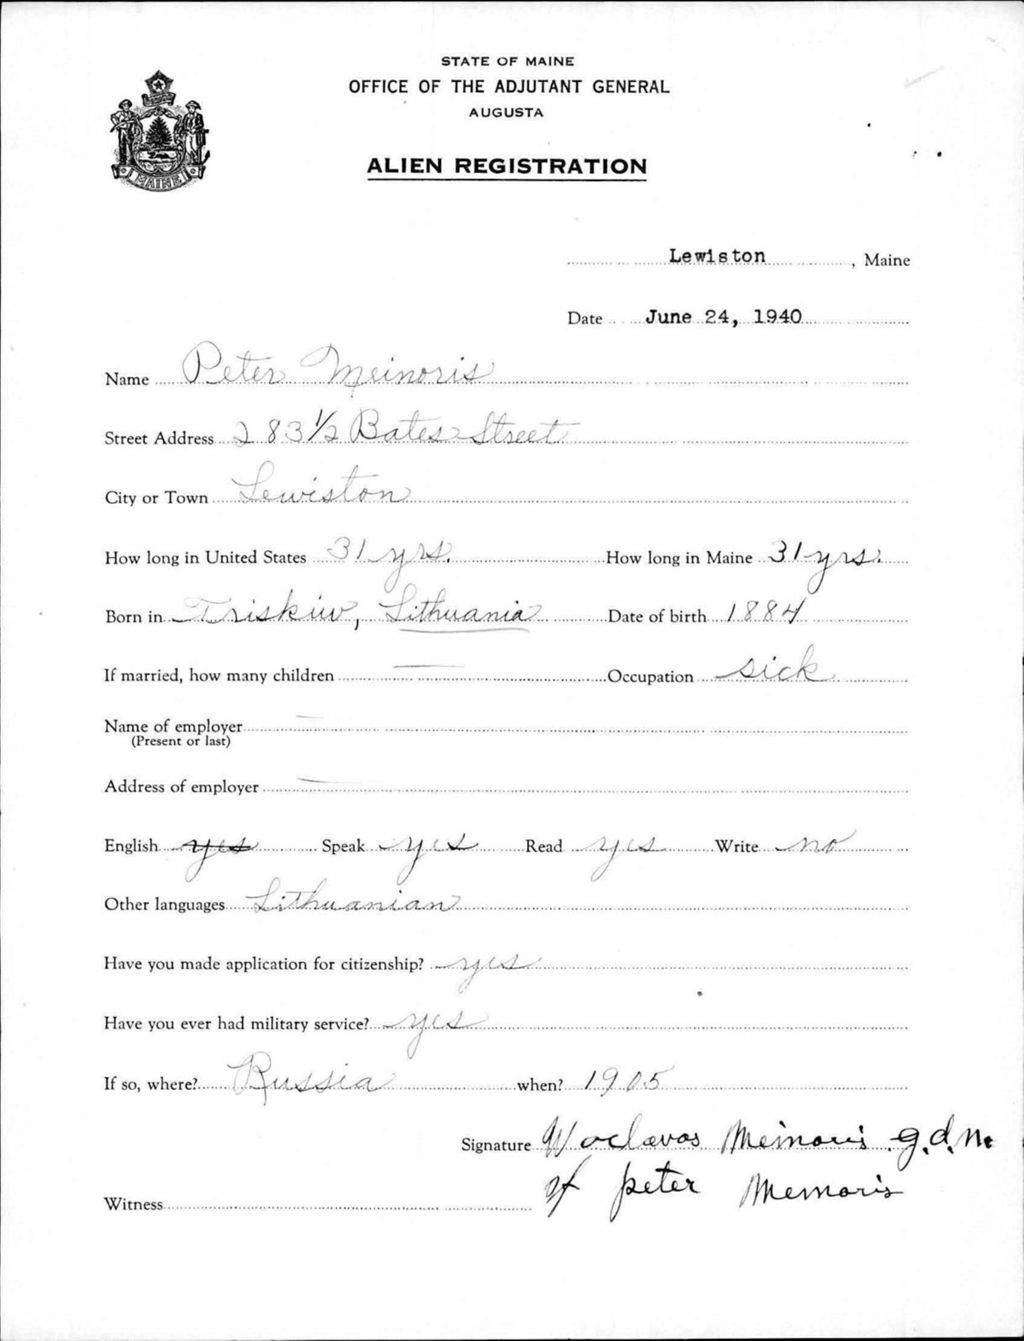 STATE OF MAINE
OFFICE OF THE ADJUTANT GENERAL
AUGUSTA
ALIEN REGISTRATION
MAINE
Lewiston, Maine
Date June 24, 1940
Name Peter Meinoris
Street Address 283 1/2 Bates Street
City or Town Lewiston
How long in United States 31 yrs. How long in Maine 31 yrs.
Born in Triskuv, Lithuania Date of birth 1884
If married, how many children — Occupation sick
Name of employer —
(Present or last)
Address of employer —
English yes Speak yes Read yes Write no
Other languages Lithuanian
Have you made application for citizenship? yes
Have you ever had military service? yes
If so, where? Russia when? 1905
Signature Meinoris g.d.n.
Witness of peter Memoris